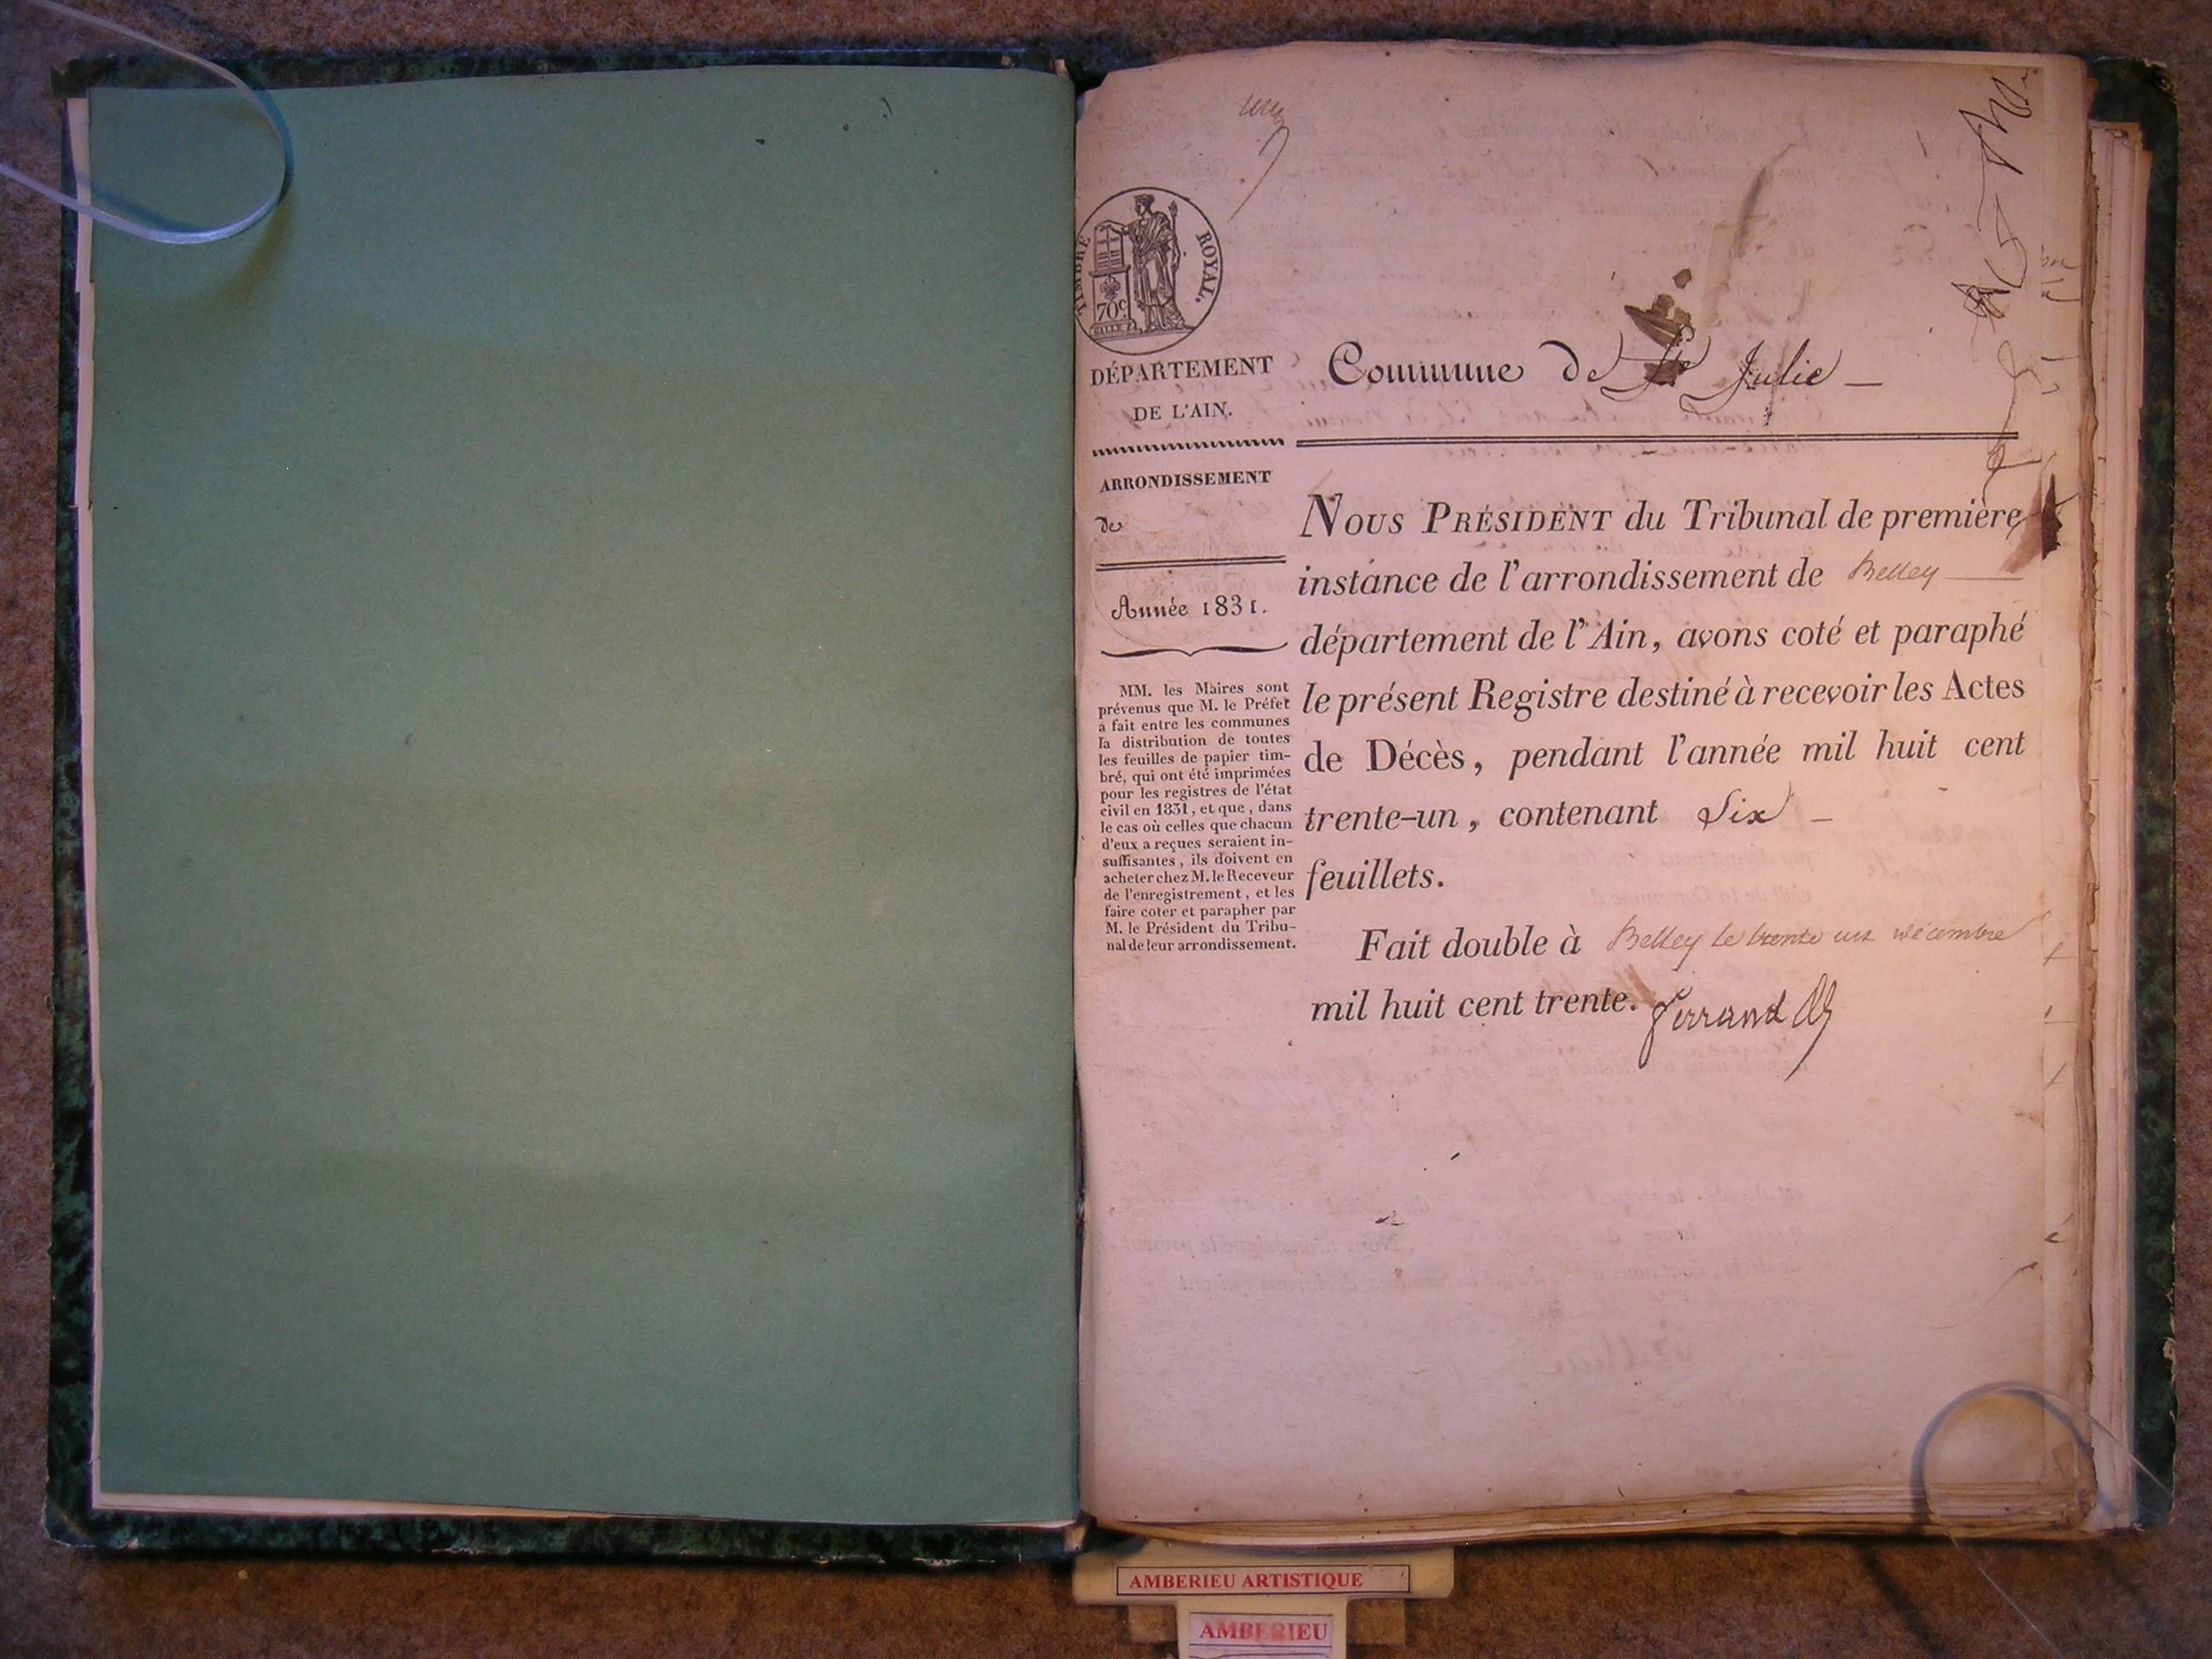 TIMBRE ROYAL.
70c
DÉPARTEMENT
DE L'AIN.
ARRONDISSEMENT
de
Année 1831.
MM. les Maires sont
prévenus que M. le Préfet
a fait entre les communes
la distribution de toutes
les feuilles de papier tim-
bré, qui ont été imprimées
pour les registres de l'état
civil en 1831, et que, dans
le cas où celles que chacun
d'eux a reçues seraient in-
suffisantes, ils doivent en
acheter chez M. le Receveur
de l'enregistrement, et les
faire coter et parapher par
M. le Président du Tribu-
nal de leur arrondissement.
Commune de Ste Julie
NOUS PRÉSIDENT du Tribunal de première
instance de l'arrondissement de Belley
département de l'Ain, avons coté et paraphé
le présent Registre destiné à recevoir les Actes
de Décès, pendant l'année mil huit cent
trente-un, contenant Six
feuillets.
Fait double à Belley le trente un décembre
mil huit cent trente. Ferrand
AMBERIEU ARTISTIQUE
AMBERIEU